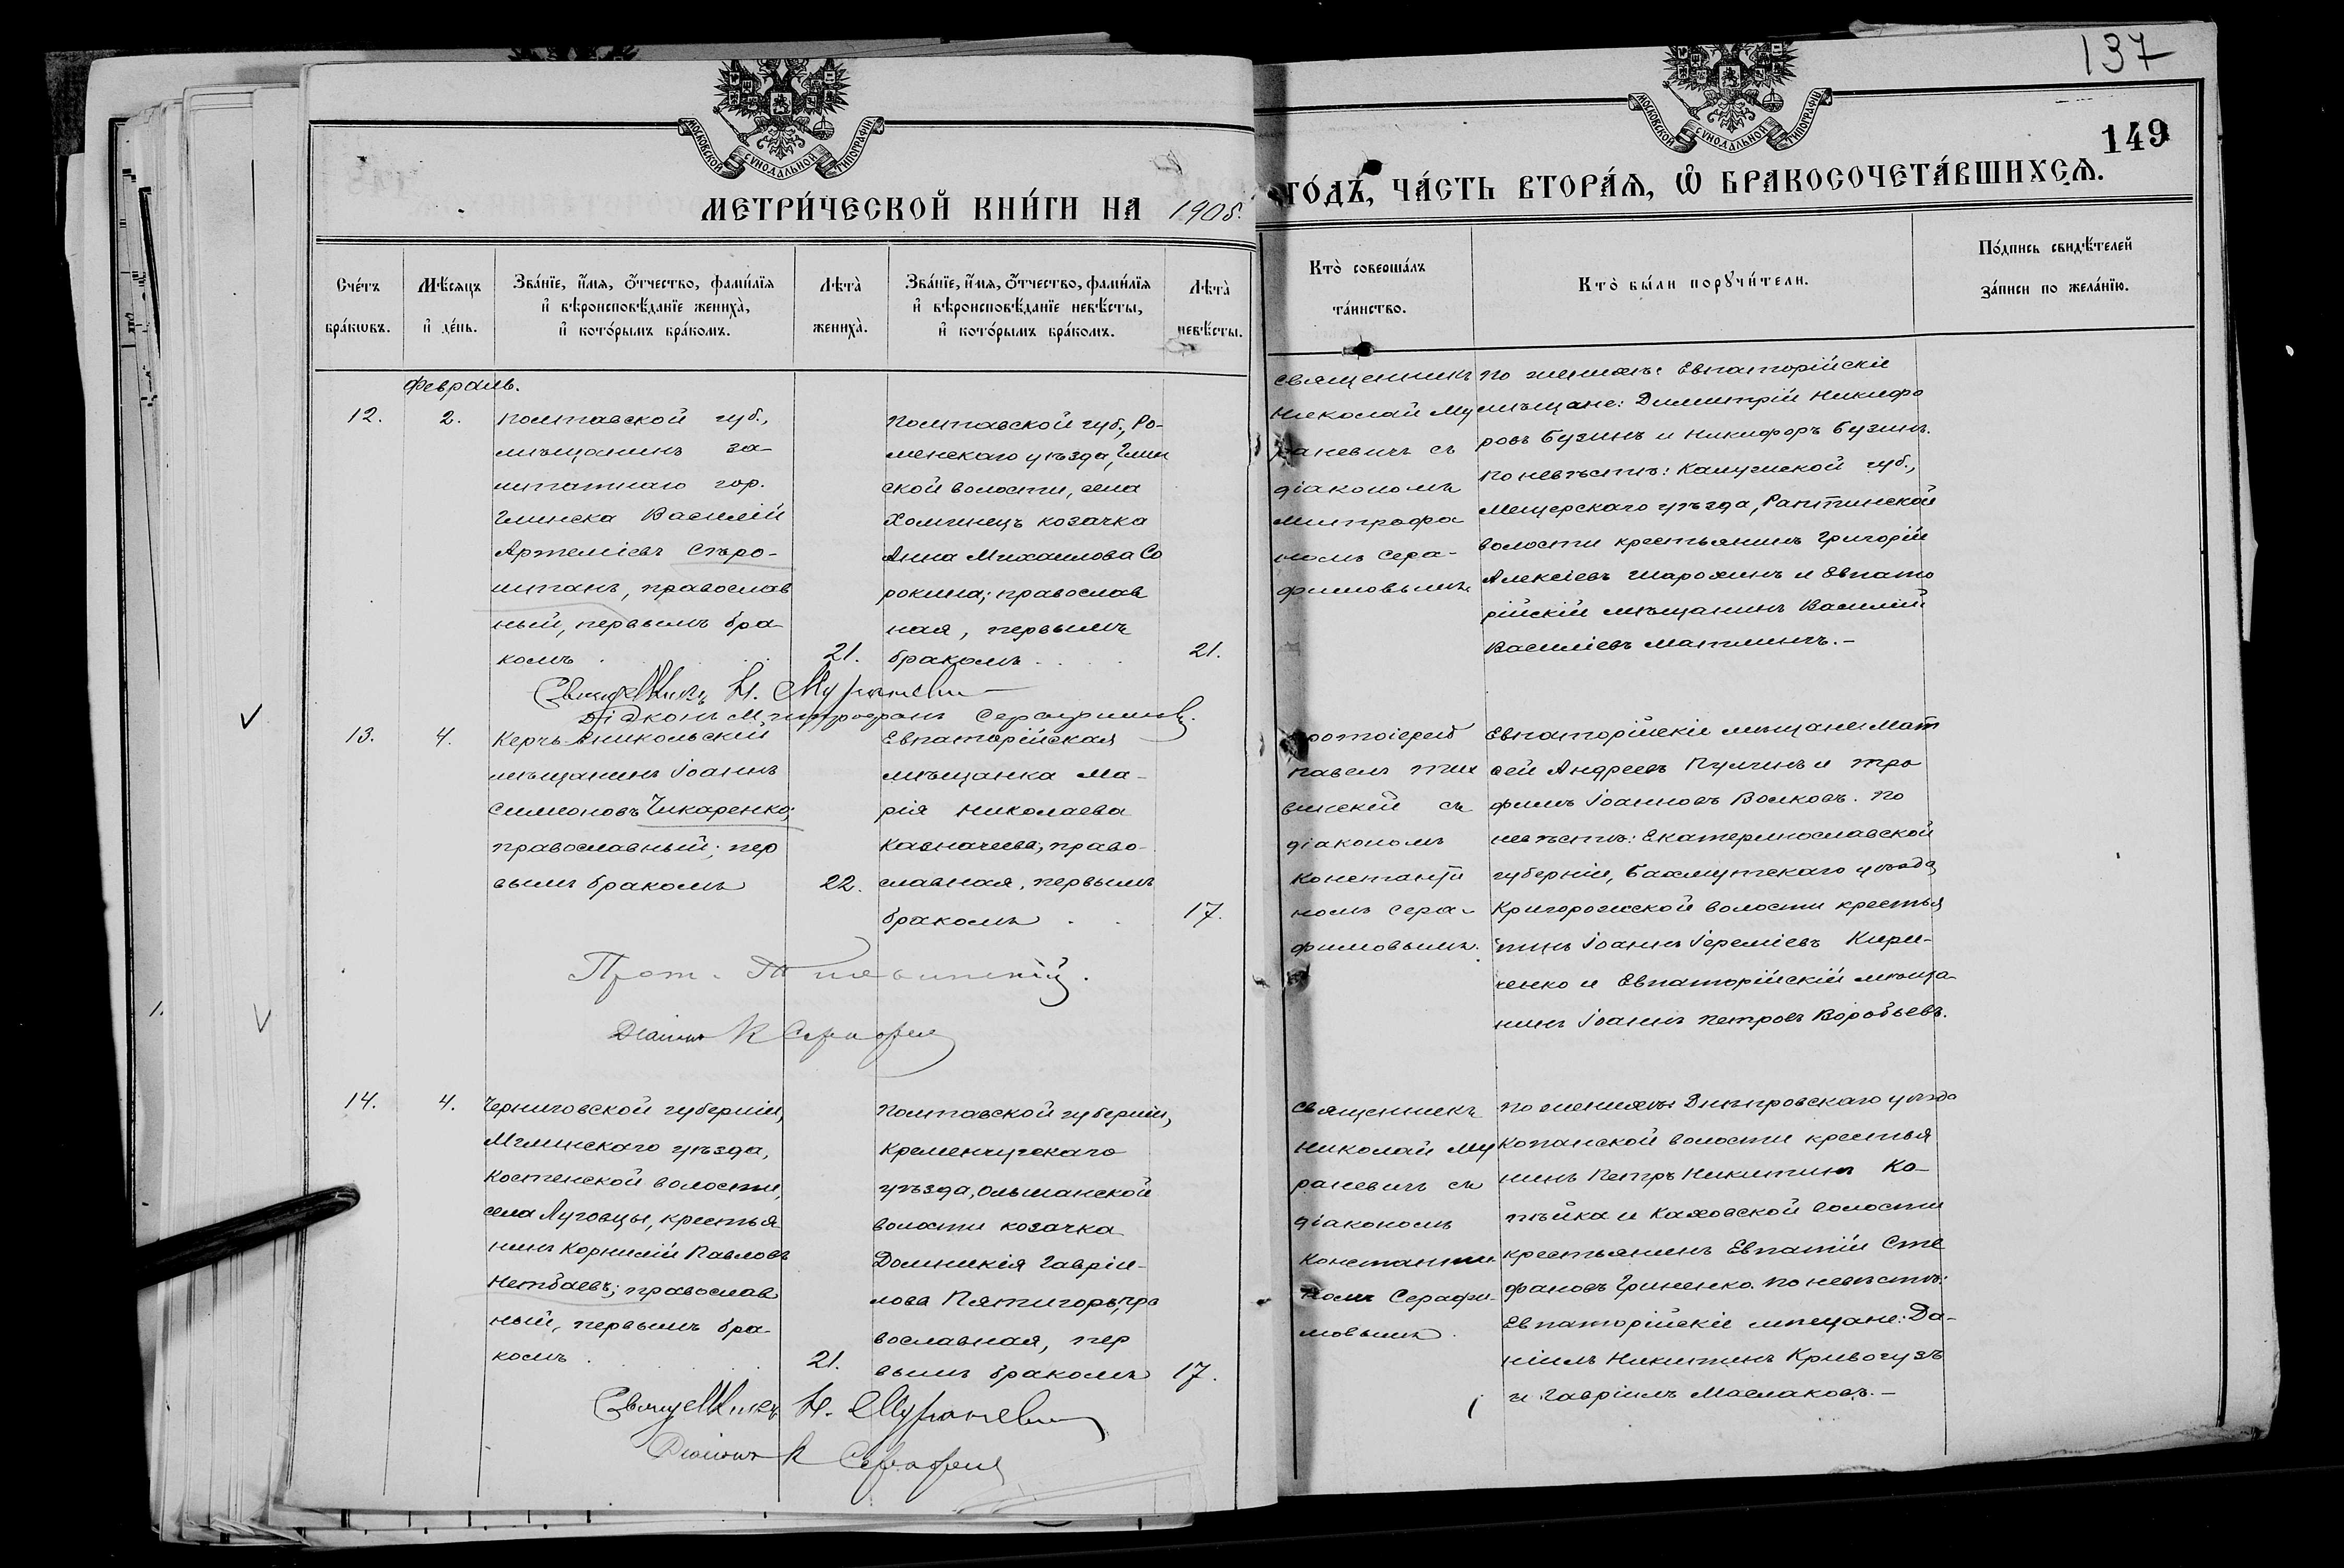 137
149
МОСКОВСКОЙ СѴНОДАЛЬНОЙ ТИПОГРАФІИ
МОСКОВСКОЙ СѴНОДАЛЬНОЙ ТИПОГРАФІИ
МЕТРИ́ЧЕСКОЙ КНИ́ГИ НА 1908.
ГО́ДЪ, ЧА́СТЬ ВТОРА́Ѧ, Ѽ БРАКОСОЧЕТА́ВШИХСѦ.
Сче́тъ
бра́кωвъ.
Мѣ́сяцъ
и҆ де́нь.
Зва́нїе, и҆́мя, ѻ҆́тчество, фами́лїя
и҆ вѣроисповѣ́данїе женихà,
и҆ кото́рымъ бра́комъ.
Лѣтà
женихà.
Зва́нїе, и҆́мя, ѻ҆́тчество, фами́лїя
и҆ вѣроисповѣ́данїе невѣ́сты,
и҆ кото́рымъ бра́комъ.
Лѣтà
невѣ́сты.
Кто̀ соверша́лъ
та́инство.
Кто̀ бы́ли порꙋчи́тели.
По́дпись свидѣ́телей
за́писи по жела́нїю.
Февраль.
12.
2.
Полтавской губ.,
мѣщанинъ за-
штатнаго гор.
Глинска Василій
Артеміевъ Стро-
штанъ, православ
ный, первымъ бра-
комъ
21.
Полтавской губ., Ро-
менскаго уѣзда, Глин
ской волости, села
Хоминецъ козачка
Анна Михаилова Со
рокина; православ
ная, первымъ
бракомъ
21.
Священникъ
Николай Му
раневичъ съ
діакономъ
Митрофа
номъ Сера-
фимовымъ
По женихѣ: Евпаторійскіе
мѣщане: Димитрій Никифо
ровъ Бузинъ и Никифоръ Бузинъ.
По невѣстѣ: Калужской губ.,
Мещерскаго уѣзда,
волости крестьянинъ Григорій
Алексіевъ Шарохинъ и Евпато
рійскій мѣщанинъ Василій
Василіевъ Матлинъ.-
Священникъ Н. Мураневич
Діаконъ Митрофанъ Серафимовъ.
13.
4.
Керчь-Еникольскій
мѣщанинъ Іоаннъ
Симеоновъ Чикаренко;
православный; пер
вымъ бракомъ
22.
Евпаторійская
мѣщанка Ма-
рія Николаева
Казначеева; право-
славная, первымъ
бракомъ
17.
Протоіерей
Павелъ Тих
винскій съ
діакономъ
Константи
номъ Сера-
фимовымъ.
Евпаторійскіе мѣщане: Мат
вей Андреевъ Пулинъ и Тро
фимъ Іоанновъ Волковъ. По
невѣстѣ: Екатеринославской
губерніи, Бахмутскаго уѣзда
Криворожской волости крестья
нинъ Іоаннъ Іереміевъ Кири-
ченко и Евпаторійскій мѣща-
нинъ Іоаннъ Петровъ Воробьевъ.
Прот. П. Тихвинскій.
Діаконъ К Серафим
14.
4.
Черниговской губерніи,
Мглинскаго уѣзда,
Костенской волости,
села Луговцы, крестья
нинъ Корнилій Павловъ
Нетбаевъ; православ
ный, первымъ бра-
комъ
21.
Полтавской губерніи,
Кременчугскаго
уѣзда, Ольшанской
волости козачка
Домникія Гавріи-
лова Пятигоръ, пра
вославная, пер
вымъ бракомъ
17.
Священникъ
Николай Му
раневичъ съ
діакономъ
Константи
номъ Серафи-
мовымъ.
По женихѣ: Днѣпровскаго уѣзда
Копанской волости крестья
нинъ Петръ Никитинъ Ко-
пѣйка и Каховской волости
крестьянинъ Евпатій Сте
фановъ Гриненко. По невѣстѣ:
Евпаторійскіе мѣщане: Да-
ніилъ Никитинъ Кривогузъ
и Гавріилъ Маслаковъ.-
Священникъ Н. Мураневич
Діаконъ К Серафим